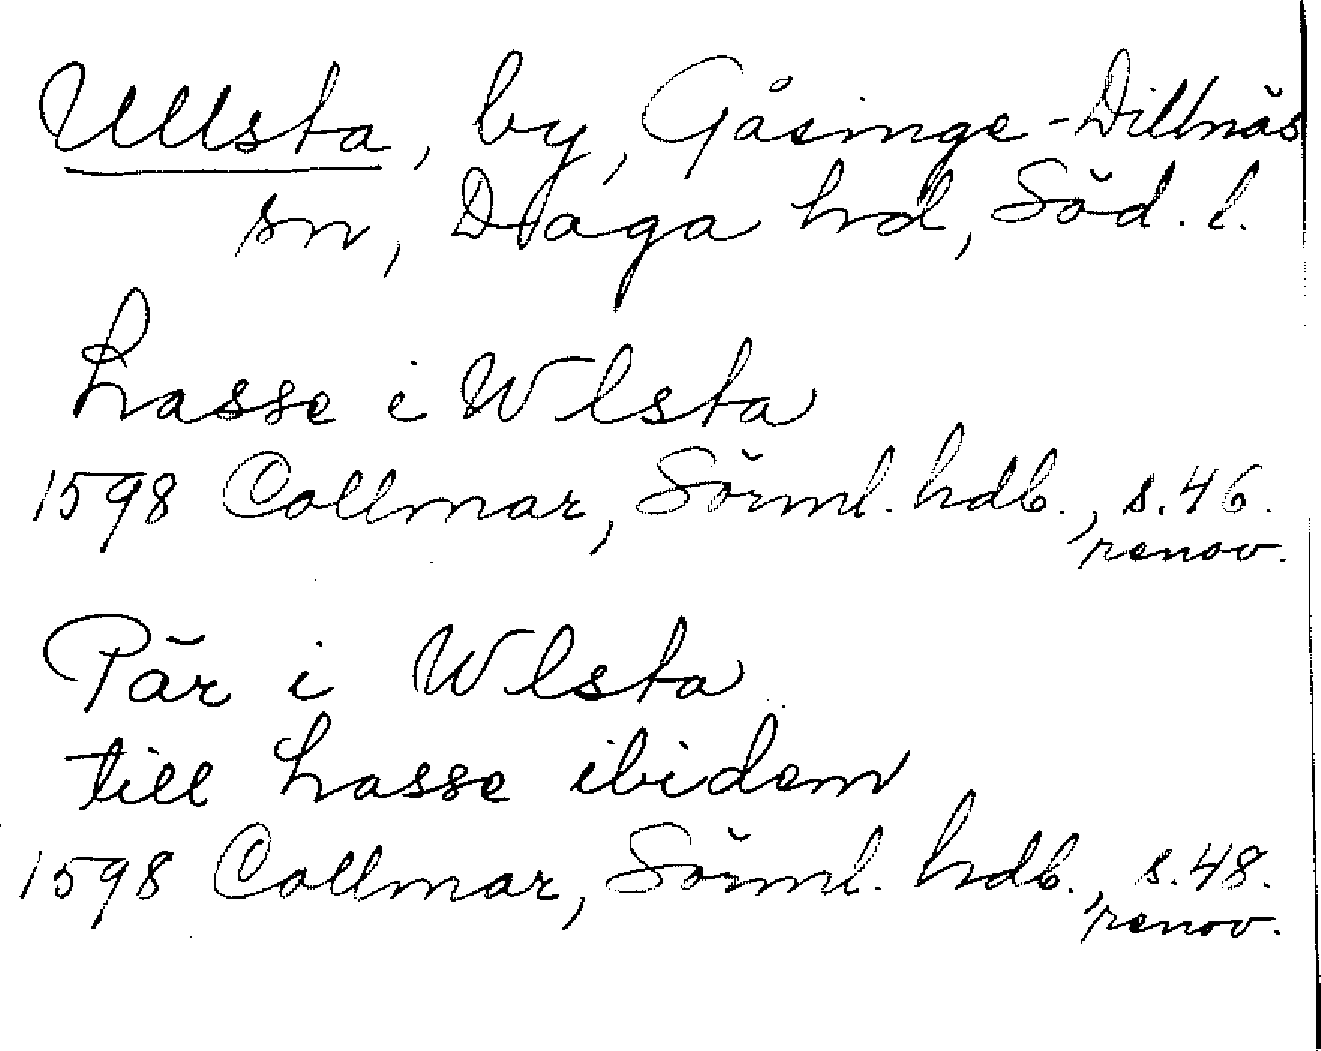 Ullsta, by, Gåsinge-Dillnäs
sn, Daga hd, Söd. l.
Lasse i Wlsta
1598 Collmar, Sörml. hdb., s. 46.
renov.
Pär i Wlsta
till Lasse ibidem
1598 Collmar, Sörml. hdb., s. 48.
renov.